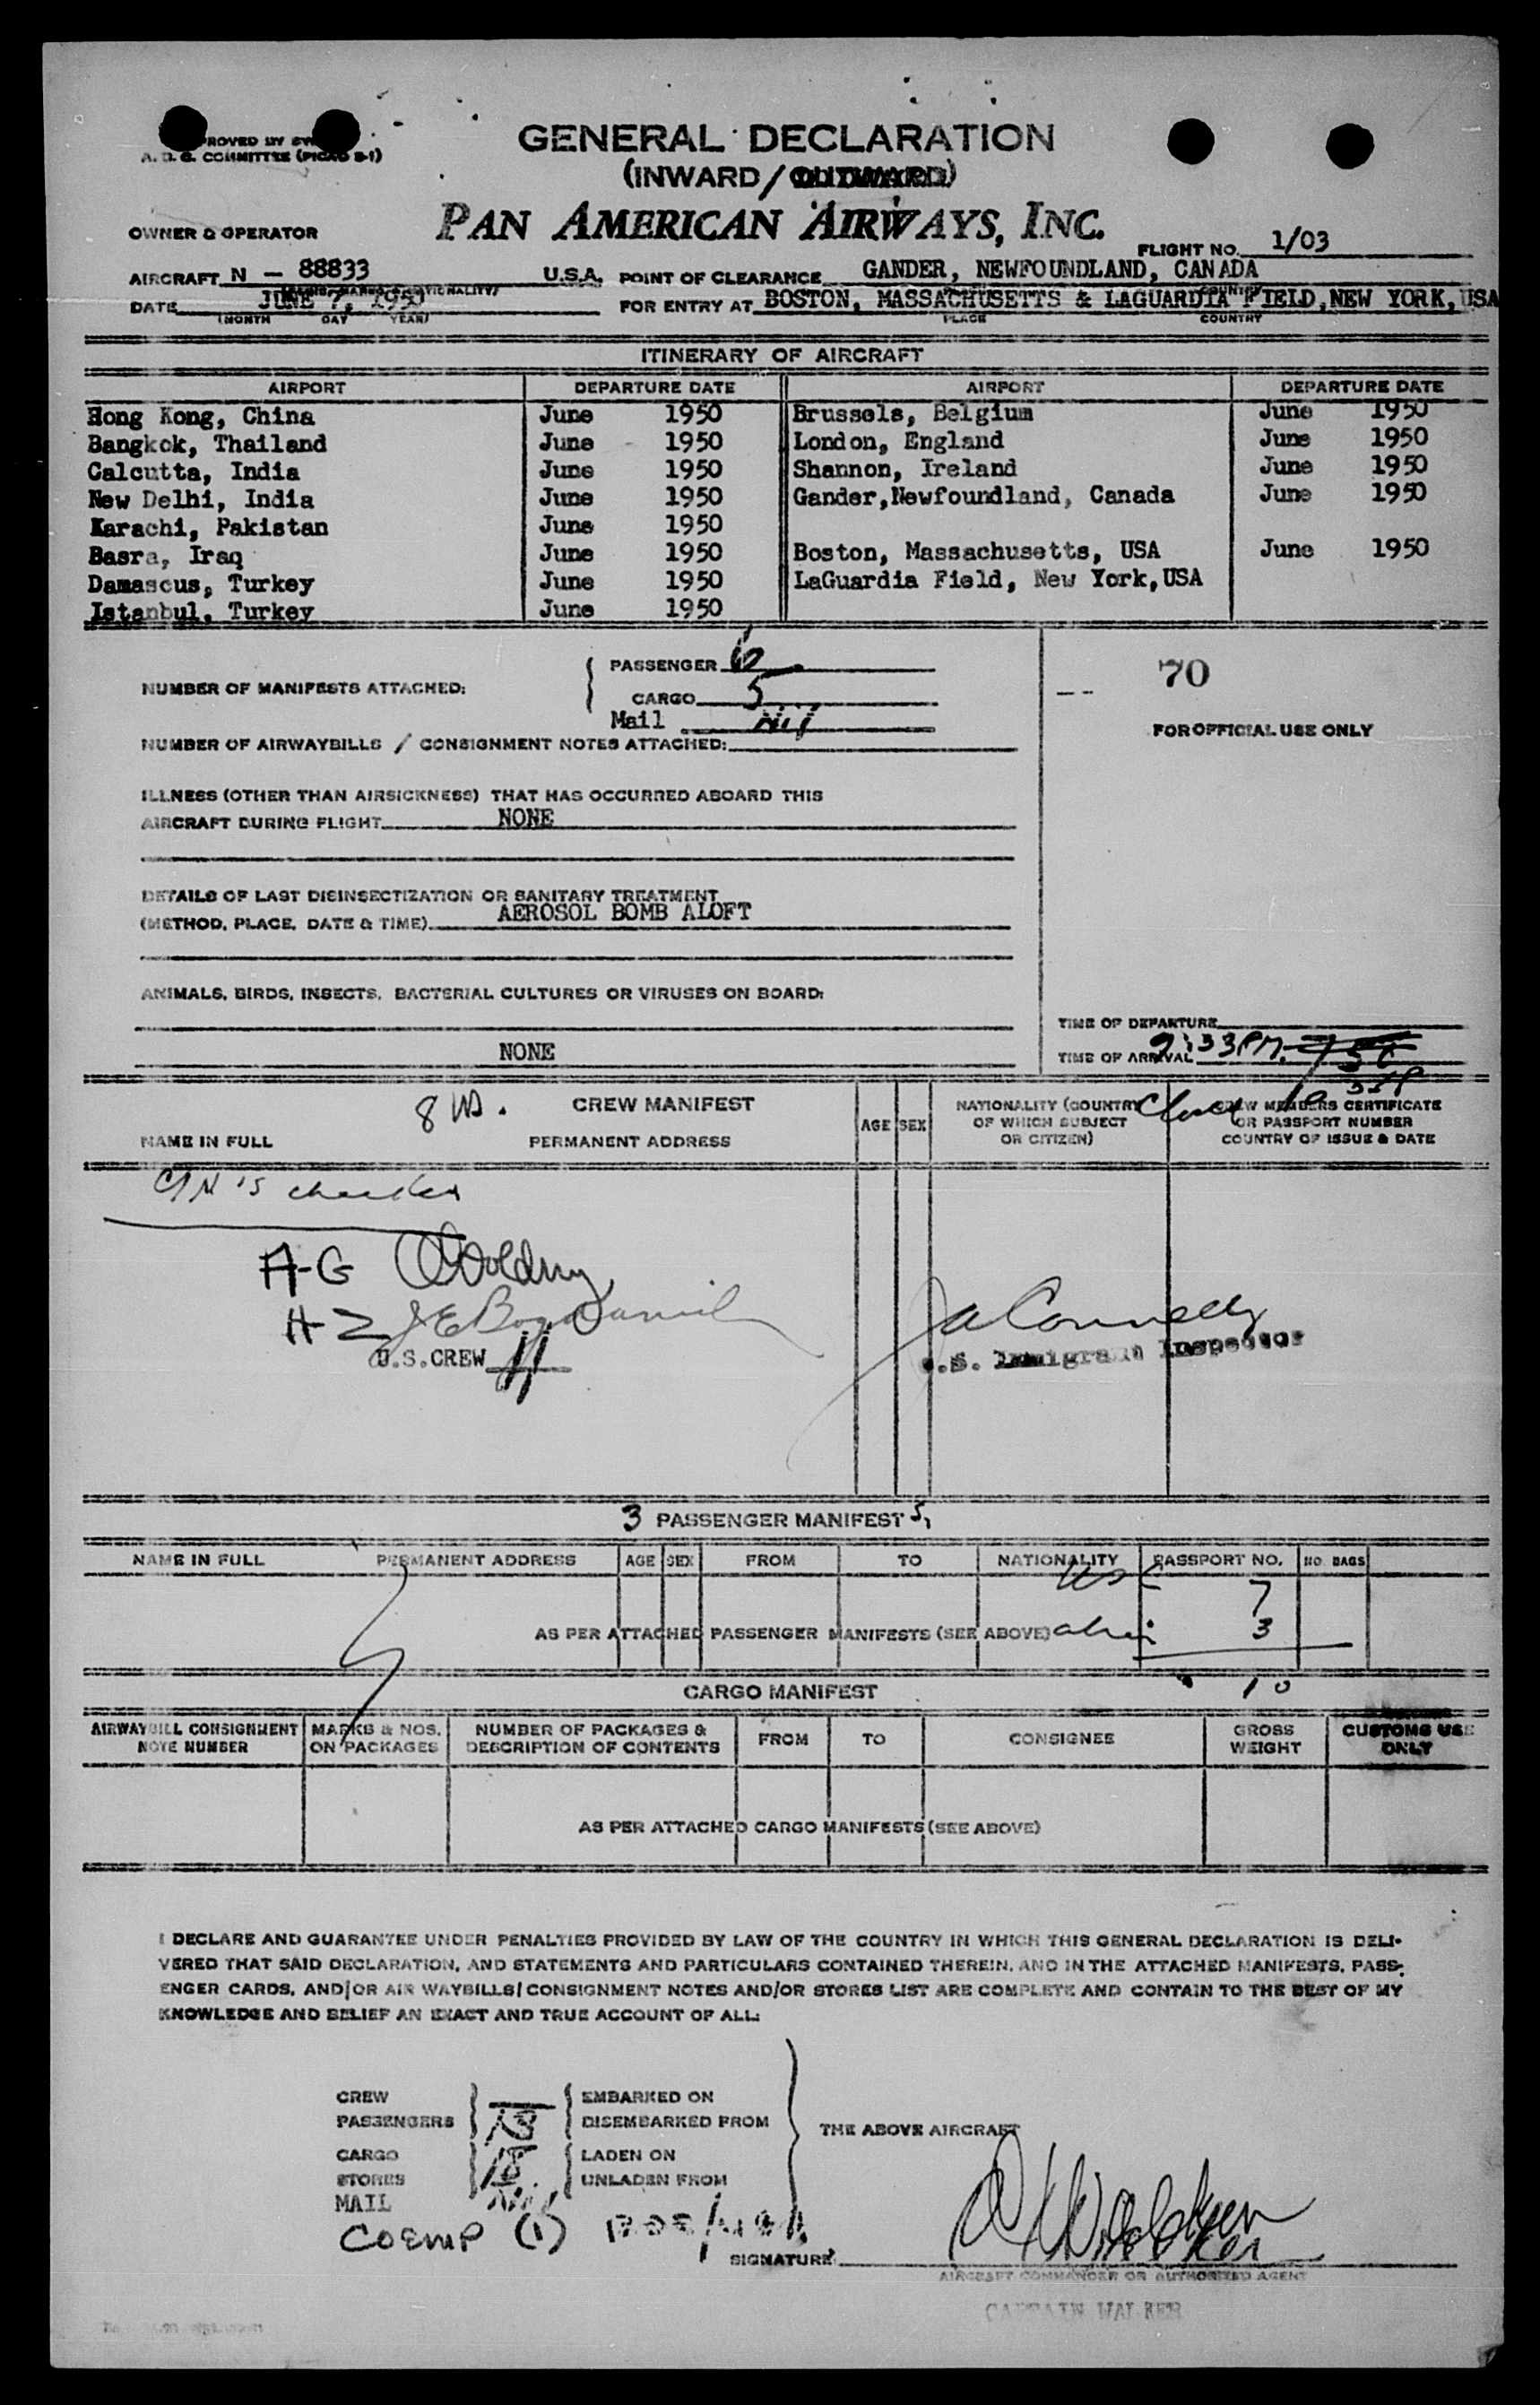 GENERAL DECLARATION
(INWARD/OUTWARD)
A. D. G. COMMITTEE (PICAO B-1)
OWNER & OPERATOR PAN AMERICAN AIRWAYS, INC.
FLIGHT NO. 1/03
AIRCRAFT N - 88833 U.S.A. POINT OF CLEARANCE GANDER, NEWFOUNDLAND, CANADA
DATE JUNE 7, 1950 FOR ENTRY AT BOSTON, MASSACHUSETTS & LAGUARDIA FIELD, NEW YORK, USA
(MONTH DAY YEAR) PLACE COUNTRY
ITINERARY OF AIRCRAFT
AIRPORT DEPARTURE DATE AIRPORT DEPARTURE DATE
Hong Kong, China June 1950 Brussels, Belgium June 1950
Bangkok, Thailand June 1950 London, England June 1950
Calcutta, India June 1950 Shannon, Ireland June 1950
New Delhi, India June 1950 Gander, Newfoundland, Canada June 1950
Karachi, Pakistan June 1950
Basra, Iraq June 1950 Boston, Massachusetts, USA June 1950
Damascus, Turkey June 1950 LaGuardia Field, New York, USA
Istanbul, Turkey June 1950
NUMBER OF MANIFESTS ATTACHED: PASSENGER
CARGO 5
Mail Nil
70
FOR OFFICIAL USE ONLY
NUMBER OF AIRWAYBILLS / CONSIGNMENT NOTES ATTACHED:
ILLNESS (OTHER THAN AIRSICKNESS) THAT HAS OCCURRED ABOARD THIS
AIRCRAFT DURING FLIGHT NONE
DETAILS OF LAST DISINSECTIZATION OR SANITARY TREATMENT
(METHOD, PLACE, DATE & TIME) AEROSOL BOMB ALOFT
ANIMALS, BIRDS, INSECTS, BACTERIAL CULTURES OR VIRUSES ON BOARD:
NONE
TIME OF DEPARTURE
TIME OF ARRIVAL 9:33 PM.
CREW MANIFEST
NAME IN FULL PERMANENT ADDRESS AGE SEX NATIONALITY (COUNTRY OF WHICH SUBJECT OR CITIZEN) CREW MEMBERS CERTIFICATE OR PASSPORT NUMBER COUNTRY OF ISSUE & DATE
A-G
H-2
U.S.CREW 11
JA Connelly
U.S. Immigrant Inspector
3 PASSENGER MANIFESTS
NAME IN FULL PERMANENT ADDRESS AGE SEX FROM TO NATIONALITY PASSPORT NO. NO. BAGS
USC 7
AS PER ATTACHED PASSENGER MANIFESTS (SEE ABOVE) 3
10
CARGO MANIFEST
AIRWAYBILL CONSIGNMENT NOTE NUMBER MARKS & NOS. ON PACKAGES NUMBER OF PACKAGES & DESCRIPTION OF CONTENTS FROM TO CONSIGNEE GROSS WEIGHT CUSTOMS USE ONLY
AS PER ATTACHED CARGO MANIFESTS (SEE ABOVE)
I DECLARE AND GUARANTEE UNDER PENALTIES PROVIDED BY LAW OF THE COUNTRY IN WHICH THIS GENERAL DECLARATION IS DELI-
VERED THAT SAID DECLARATION, AND STATEMENTS AND PARTICULARS CONTAINED THEREIN, AND IN THE ATTACHED MANIFESTS, PASS-
ENGER CARDS, AND/OR AIR WAYBILLS/CONSIGNMENT NOTES AND/OR STORES LIST ARE COMPLETE AND CONTAIN TO THE BEST OF MY
KNOWLEDGE AND BELIEF AN EXACT AND TRUE ACCOUNT OF ALL:
CREW EMBARKED ON
PASSENGERS DISEMBARKED FROM
THE ABOVE AIRCRAFT
CARGO LADEN ON
STORES UNLADEN FROM
MAIL
COEMP (1)
SIGNATURE:
AIRCRAFT COMMANDER OR AUTHORIZED AGENT
CAPTAIN WALKER